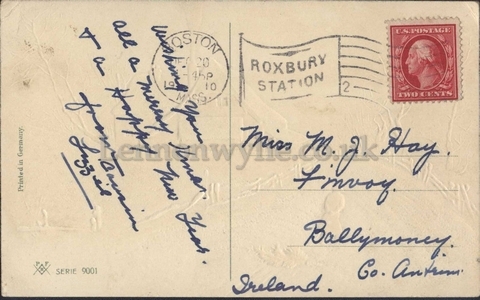 BOSTON
DEC 20
-45P
1910
MASS.
ROXBURY
STATION
2
U.S. POSTAGE
TWO CENTS
Wishing you
all a merry Xmas
& a Happy New Year.
from Cousin
Lizzie
Miss M. J. Hay.
Finvoy.
Ballymoney.
Co. Antrim
Ireland.
Printed in Germany
SERIE 9001
lennonwylie.co.uk